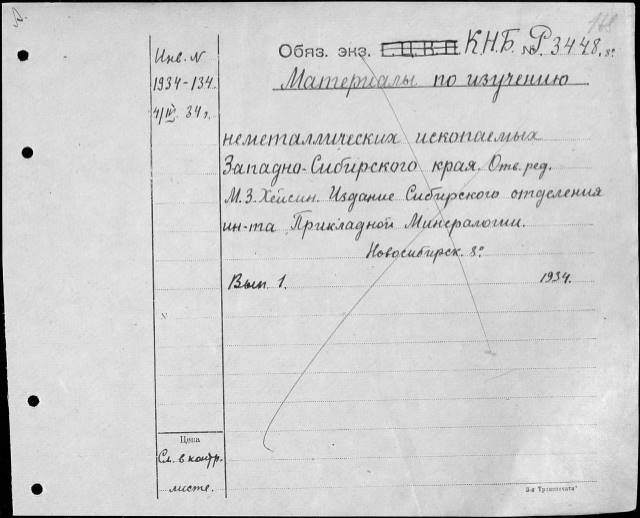 168
Инв. N
1934-134
4/IV 34 г.
Обяз. экз. Г.Ц.К.П. К.Н.Б. № Р3448. 8º
Материалы по изучению
неметаллических ископаемых
Западно-Сибирского края. Отв. ред.
М.З. Хейсин. Издание Сибирского отделения
ин-та Прикладной Минералогии.
Новосибирск. 8º
Вып. 1. 1934.
N
Цена
См. в контр.
листе.
3-я Транспечать